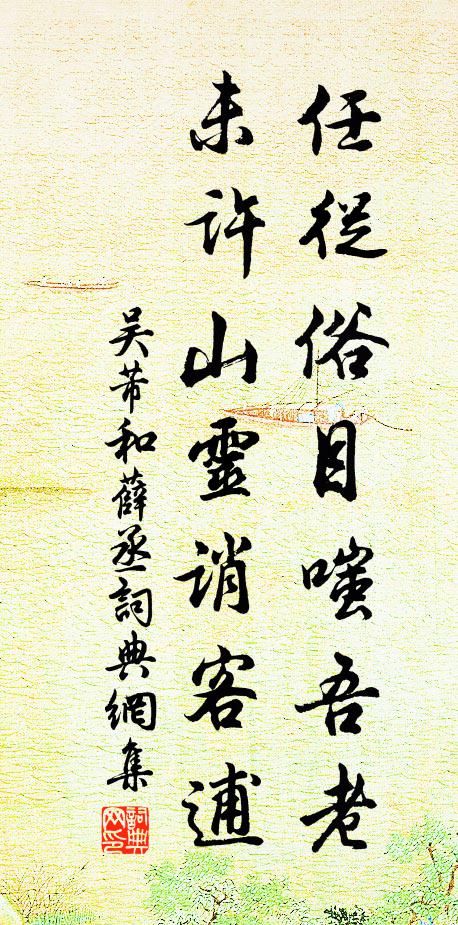 任從俗目嗤吾老
未許山靈誚客逋
吳芾和薛丞詞典網集
詞典網印